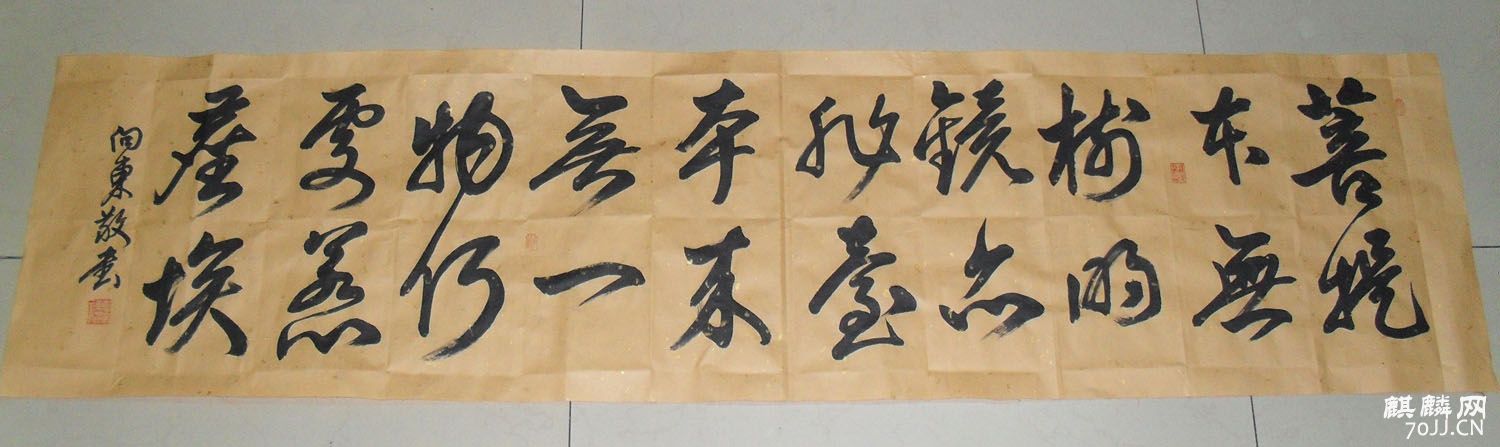 菩提
本無
樹明
鏡亦
非臺
本来
無一
物何
處惹
塵埃
向東敬書
麒麟网
70JJ.CN